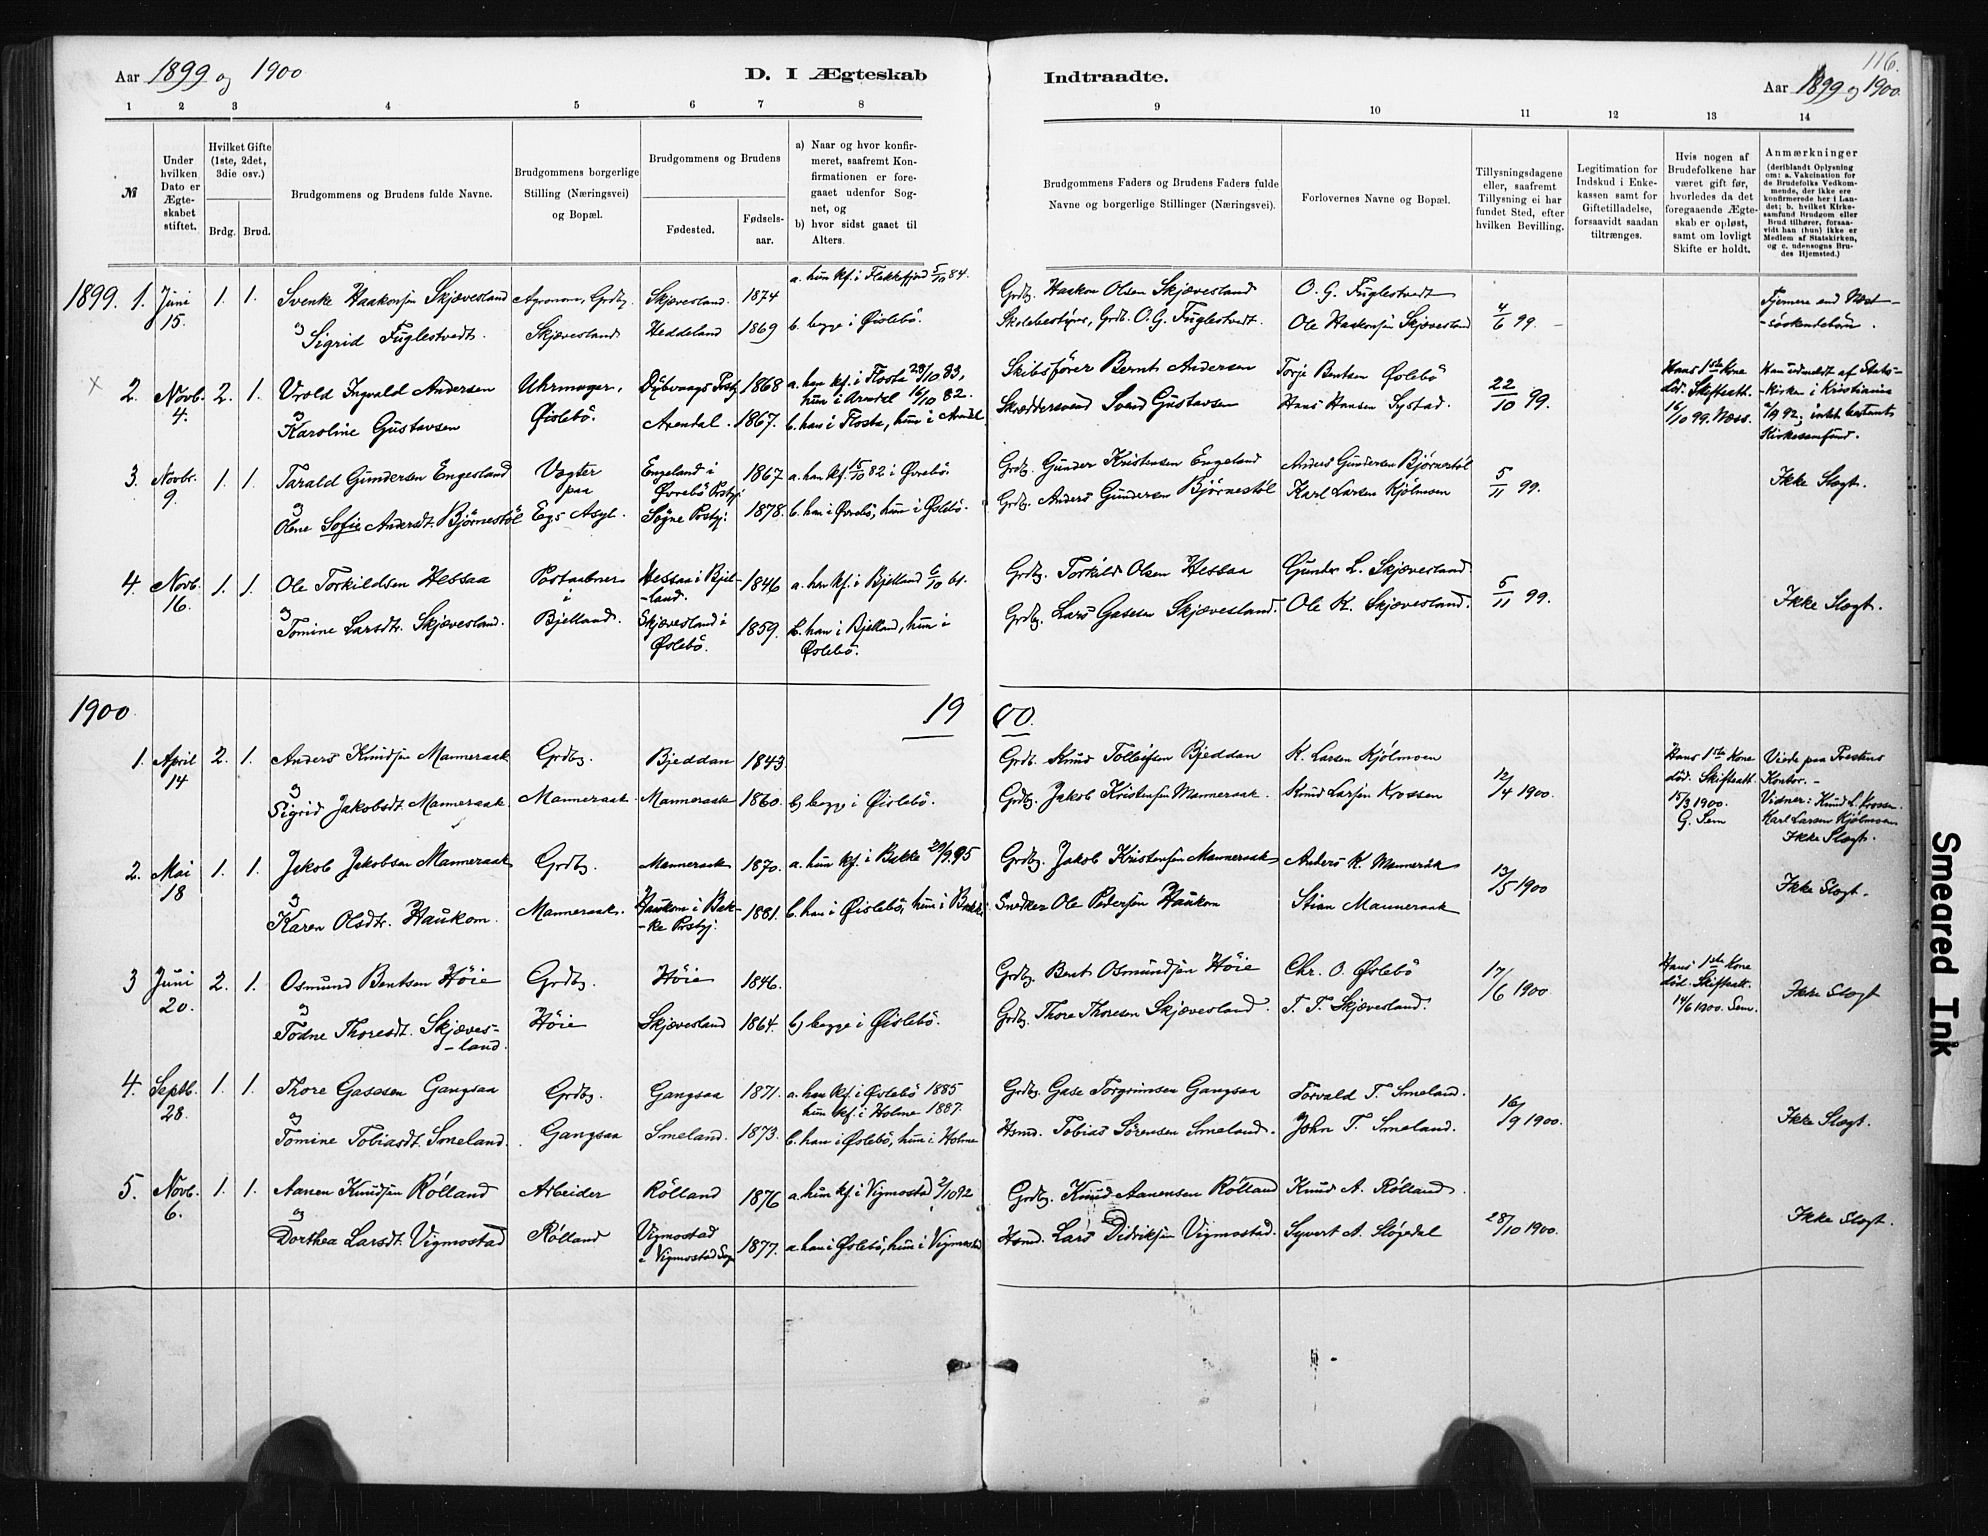 116.
Aar 1899 og 1900
D. I Ægteskab Indtraadte.
Aar 1899 og 1900.
1 2 3 4 5 6 7 8 9 10 11 12 13 14
№
Under hvilken Dato er Ægteskabet stiftet.
Hvilket Gifte (1ste, 2det, 3die osv.)
Brdg. Brud.
Brudgommens og Brudens fulde Navne.
Brudgommens borgerlige Stilling (Næringsvei) og Bopæl.
Brudgommens og Brudens
Fødested.
Fødselsaar.
a) Naar og hvor konfirmeret, saafremt Konfirmationen er foregaaet udenfor Sognet, og
b) hvor sidst gaaet til Alters.
Brudgommens Faders og Brudens Faders fulde Navne og borgerlige Stillinger (Næringsvei).
Forlovernes Navne og Bopæl.
Tillysningsdagene eller, saafremt Tillysning ei har fundet Sted, efter hvilken Bevilling.
Legitimation for Indskud i Enkekassen samt for Giftetilladelse, forsaavidt saadan tiltrænges.
Hvis nogen af Brudefolkene har været gift før, hvorledes da det foregaaende Ægteskab er opløst, samt om lovligt Skifte er holdt.
Anmærkninger (deriblandt Oplysning om: a. Vakcination for de Brudefolks Vedkommende, der ikke ere konfirmerede her i Landet; b. hvilket Kirkesamfund Brudgom eller Brud tilhører, forsaavidt han (hun) ikke er Medlem af Statskirken, og c. udensogns Brudes Hjemsted.)
1899. 1. Juni 15. 1. 1. Svenke Haakonsen Skjævesland Agronom, Grdbg. Skjævesland. 1874 a. hun kf. i Flekkefjord 5/10 84.
og Sigrid Fuglestvedt. Skjævesland Heddeland 1869 b. begge i Øislebø.
Grdbg. Haakon Olsen Skjævesland O. G. Fuglestvedt 4/6 99. Fjernere end Næst-
Skolebestyrer, Grdb. O. G. Fuglestvedt. Ole Haakonsen Skjævesland -søskendebørn.
x 2. Novb. 4. 2. 1. Vrold Ingvald Andersen Uhrmager, Dybvaags Prstgj. 1868 a. han kf. i Flosta 28/10 83, hun i Arendal 16/10 82.
og Karoline Gustavsen Øislebø. Arendal. 1867. b. han i Flosta, hun i Arendal
Skibsfører Bernt Andersen Torje Bentsen Øslebø 22/10 99. Hans 1ste Kone død. Skifteatt. 16/10 99. Næss.
Skræddersvend Svend Gustavsen Hans Hansen Systad. Han udmeldt af Stats-Kirken i Kristiania 92; intet bestemt Kirkesamfund.
3. Novbr. 9. 1. 1. Tarald Gundersen Engesland Vogter paa Engeland i Øvrebø Prstgj. 1867 a. han kf. 15/10 82 i Øvrebø.
og Oline Sofie Andersdt. Bjørnestøl Egs Asyl. Søgne Prstgj. 1878. b. han i Øvrebø, hun i Øslebø.
Grdbg. Gunder Kristensen Engeland Anders Gundersen Bjørnestøl 5/11 99. Ikke Slægt.
Grdbg. Anders Gundersen Bjørnestøl Karl Larsen Kjølmoen
4. Novb. 16. 1. 1. Ole Torkildsen Hessaa Postaabner i Hessaa i Bjel-land. 1846 a. han kf. i Bjelland 6/10 61.
og Tomine Larsdt. Skjævesland. Bjelland. Skjævesland i Øslebø. 1859. b. han i Bjelland, hun i Øslebø.
Grdbg. Torkild Olsen Hessaa Gunder L. Skjævesland 5/11 99. Ikke Slægt.
Grdbg. Lars Gasesen Skjævesland. Ole K. Skjævesland.
1900. 1900.
1. April 14 2. 1. Anders Knudsen Manneraak Grdbg. Bjeddan 1843.
og Sigrid Jakobsdt. Manneraak Manneraak. Manneraak 1860. b) begge i Øislebø.
Grdb. Knud Tollefsen Bjeddan K. Larsen Kjølmoen 12/4 1900. Hans 1ste Kone død. Skifteatt. 15/3 1900. G. Sem
Grdbg. Jakob Kristensen Manneraak. Knud Larsen Krossen Viede paa Prestens Kontor. - Vidner: Knud L. Krossen Karl Larsen Kjølmoen Ikke Slægt.
2. Mai 18 1. 1. Jakob Jakobsen Manneraak Grdbg. Manneraak 1870. a. hun kf. i Bakke 29/9 95
og Karen Olsdtr. Haukom. Manneraak. Haukom i Bak-ke Prstgj. 1881. b. han i Øislebø, hun i Bakke.
Grdbg. Jakob Kristensen Manneraak Anders K. Manneraak 13/5 1900 Ikke Slægt.
Snedker Ole Pedersen Haukom Stian Manneraak
3 Juni 20. 2. 1. Osmund Bentsen Høie Grdbg. Høie 1846.
og Todne Thoresdt. Skjæves-land. Høie Skjævesland 1864. b) begge i Øislebø.
Grdbg. Bent Osmundsen Høie Chr. O. Øslebø 17/6 1900 Hans 1ste Kone død. Skifteatt. 14/6 1900. Sem. Ikke Slægt
Grdbg. Thore Thoresen Skjævesland. T. T. Skjævesland.
4. Septb. 28. 1. 1. Thore Gasesen Gangsaa Grdbg. Gangsaa 1871. a. han kf. i Øslebø 1885 hun kf. i Holme 1887.
og Tomine Tobiasdt. Smeland. Gangsaa Smeland. 1873. b. han i Øslebø, hun i Holme
Grdbg. Gase Torgrimsen Gangsaa Torvald T. Smeland. 16/9 1900. Ikke Slægt.
Hsmd. Tobias Sørensen Smeland. John T. Smeland.
5. Novb. 6. 1. 1. Aanen Knudsen Rølland Arbeider Rølland 1876 a. hun kf. i Vigmostad 2/10 92
og Dorthea Larsdt. Vigmostad Rølland Vigmostad i Vigmostad Sogn 1877. a. han i Øslebø, hun i Vigmostad
Grdbg. Knud Aanensen Rølland Knud A. Rølland. 28/10 1900. Ikke Slægt.
Hsmd. Lars Didriksen Vigmostad. Syvert A. Støgedal
Smeared Ink